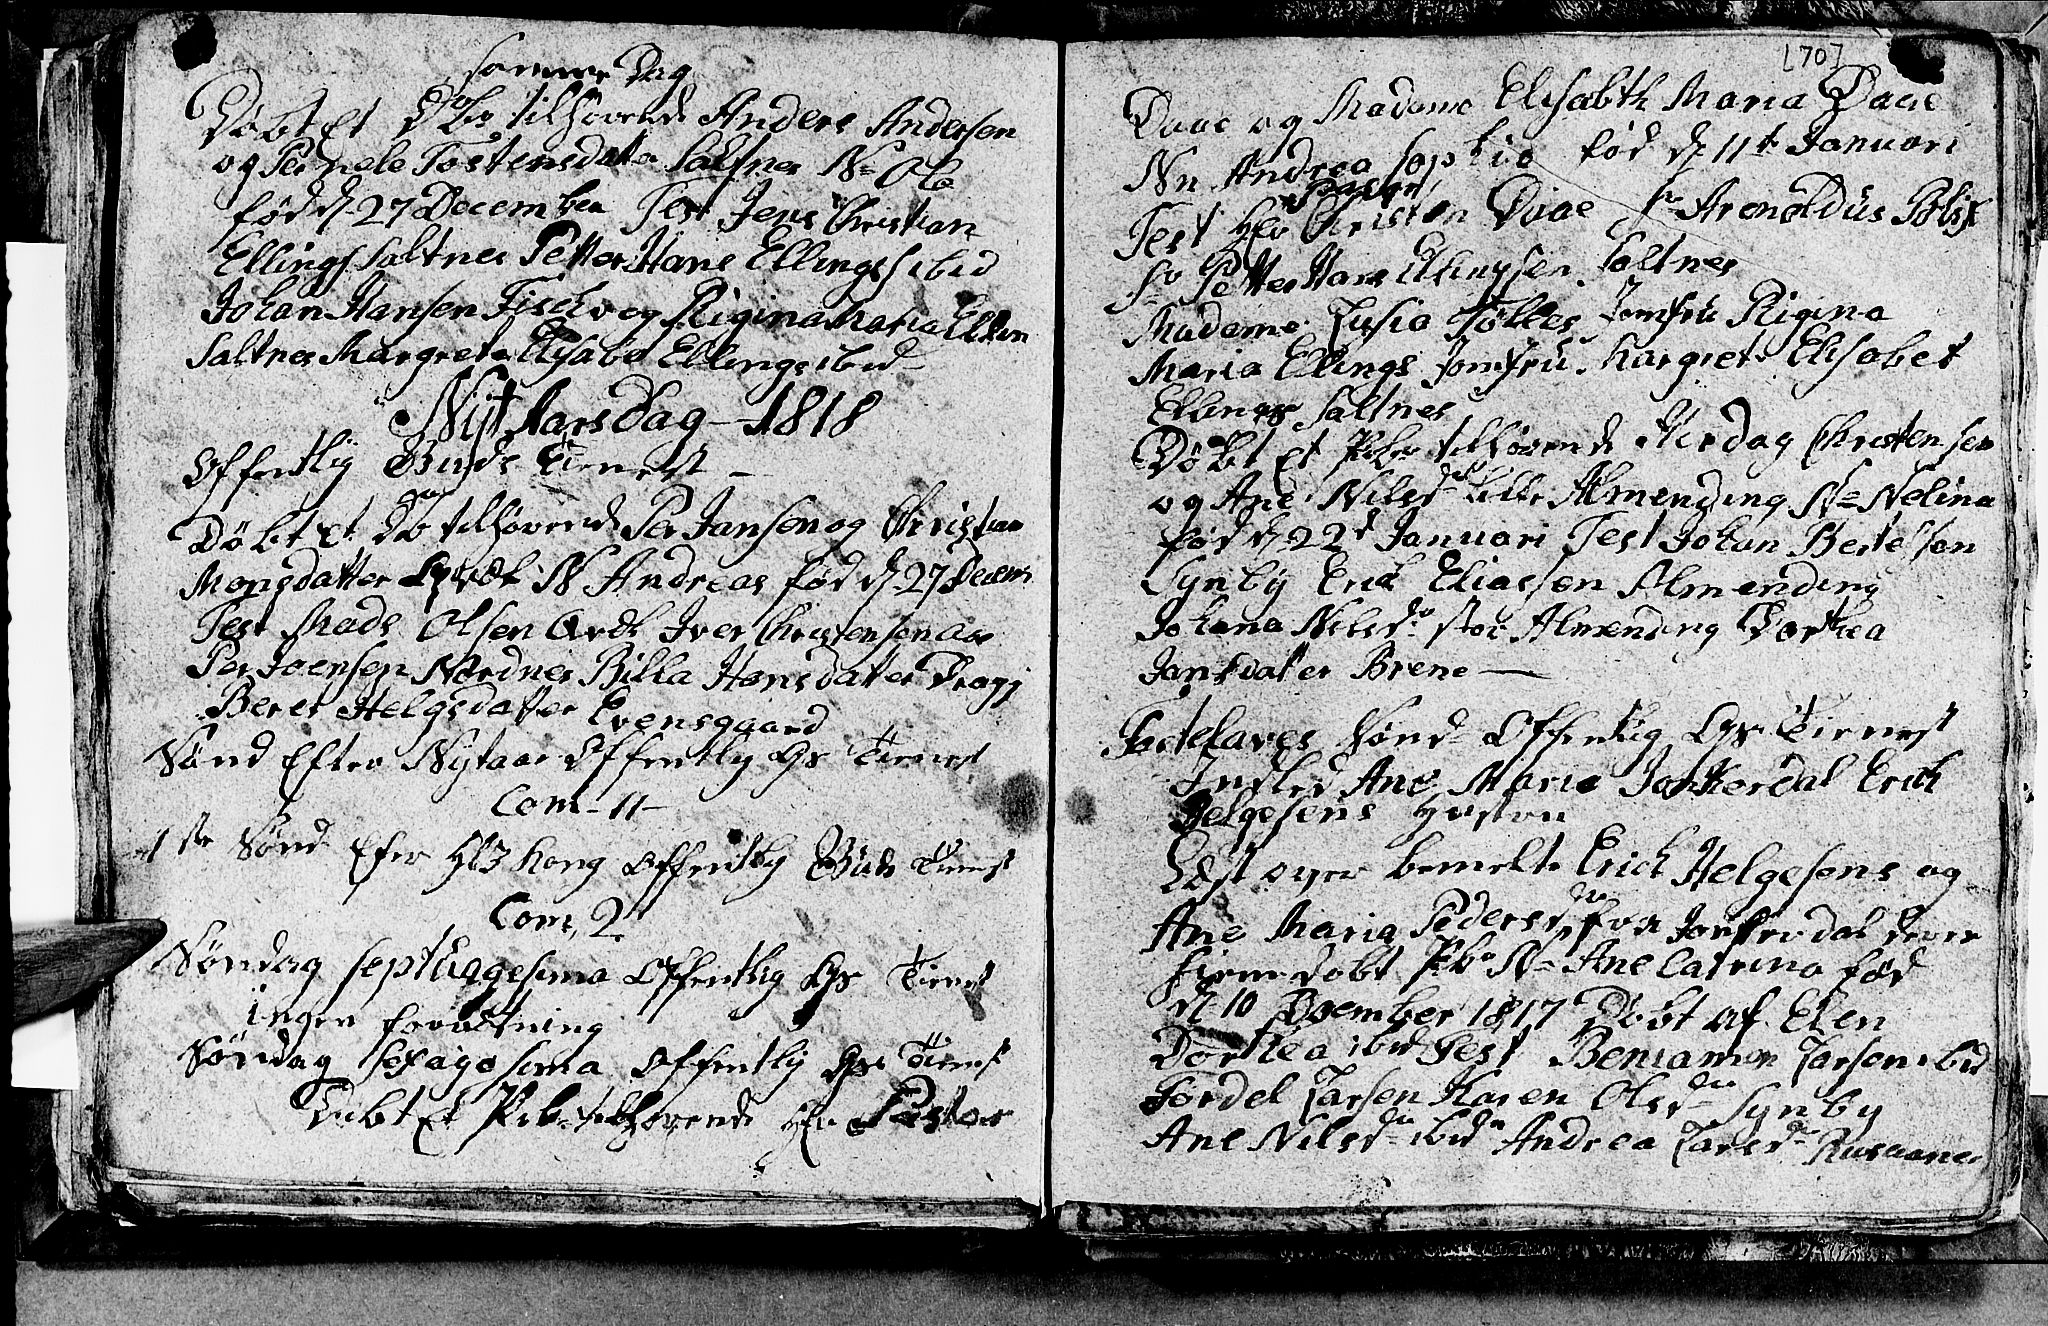 samme Dag
Døbt Et Db tilhørende Anders Andersen
og Pernele Tostensdatr Saltnes N= Ole
fød d 27 December Test Jens Christian
Ellings Saltnes Petter Hans Ellings ibid
Johan Hansen Fisch og Rigina Maria Elling
Saltnes Margrete Elisabe Ellings ibid
Nyt Aarsdag - 1818
Offentlig Guds Tienest -
Døbt Et Db tilhørende Per Jansen og Christian
Monsdatter N Andreas fød d 27 Decem
Test Mads Olsen Iver Christensen
Per Joensen Nordnes Billa Hansdatter
Beret Helgsdatter Evensgaard
Sønd Efter Nytaar Offentlig Gs Tienest
Com - 11 -
1ste Sønd Efter H 3 Kong Offentlig Guds Tienest
Com, 2
Søndag Septuagesima Offentlig Gs Tienest
ingen forretning
Søndag Sexagesima Offentlig Gs Tienest
Døbt Et Pb tilhørende Hr Pastor
[70]
Daae og Madame Elisabth Maria Daae
Nn Andrea Sophia fød d 11t Januari
Pastor
Test Hr Christen Daae Sr Arenoldus
Sr Petter Hans Ellingsen Saltnes
Madame Lusia Jomfru Rigina
Maria Ellings Jomfru Margrete Elisabet
Ellings Saltnes
Døbt Et Pb tilhørende Christensen
og Ane Nilsd Lille Almending N= Nelina
fød d 22d Januari Test Johan Bertelsen
Synby Erik Eliassen Almending
Johana Nilsdr Stor Almending Dorthea
Jansdater Brene -
Fastelavns Sønd Offentlig Gs Tienest
Ane Maria Junkerdal Erick
Helgesens Hustru
Læst over bemelte Erick Helgesens og
Ane Maria Pedersdr fra Junkerdal deres
hiemedøbt Pb N= Ane Catrina fød
d 10 Desember 1817 Døbt af Elen
Dorthea ibid Test Beniamin Larsen ibid
Fordel Larsen Karen Olsdr Synby
Ane Nilsdr ibid Andrea Larsdr